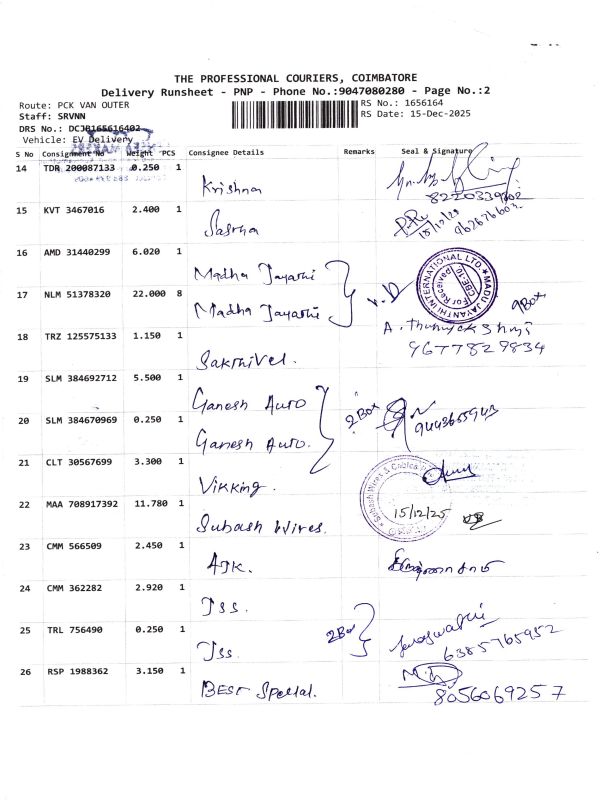 THE PROFESSIONAL COURIERS, COIMBATORE
Delivery Runsheet - PNP - Phone No.:9047080280 - Page No.:2
Route: PCK VAN OUTER
RS No.: 1656164
Staff: SRVNN
RS Date: 15-Dec-2025
DRS No.: DCJB165616402
Vehicle: EV Delivery
S No Consignment No Weight PCS Consignee Details Remarks Seal & Signature
14 TDR 200087133 0.250 1 Krishna
8220339602
15 KVT 3467016 2.400 1 Sasrha
15/12/25
962676603
16 AMD 31440299 6.020 1 Madha Jayathi
MADU JAYANTHI INTERNATIONAL LTD
For Received
CBE-10
17 NLM 51378320 22.000 8 Madha Jayathi
9Box
18 TRZ 125575133 1.150 1 Sakthivel.
9677829834
19 SLM 384692712 5.500 1 Ganesh Auto
2 Box
9443655943
20 SLM 384670969 0.250 1 Ganesh Auto.
21 CLT 30567699 3.300 1 Vikking.
Subash Wires & Cables
22 MAA 708917392 11.780 1 Subash Wires.
15/12/25
23 CMM 566509 2.450 1 AJK.
24 CMM 362282 2.920 1 Jss.
2Box
25 TRL 756490 0.250 1 Jss.
6385765952
26 RSP 1988362 3.150 1 Best Special.
8056069257